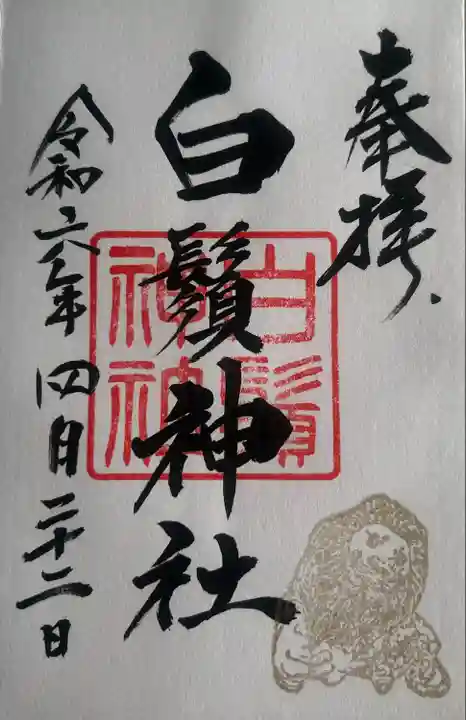 奉拝
白鬚神社
令和六年四月二十二日
白鬚
神社